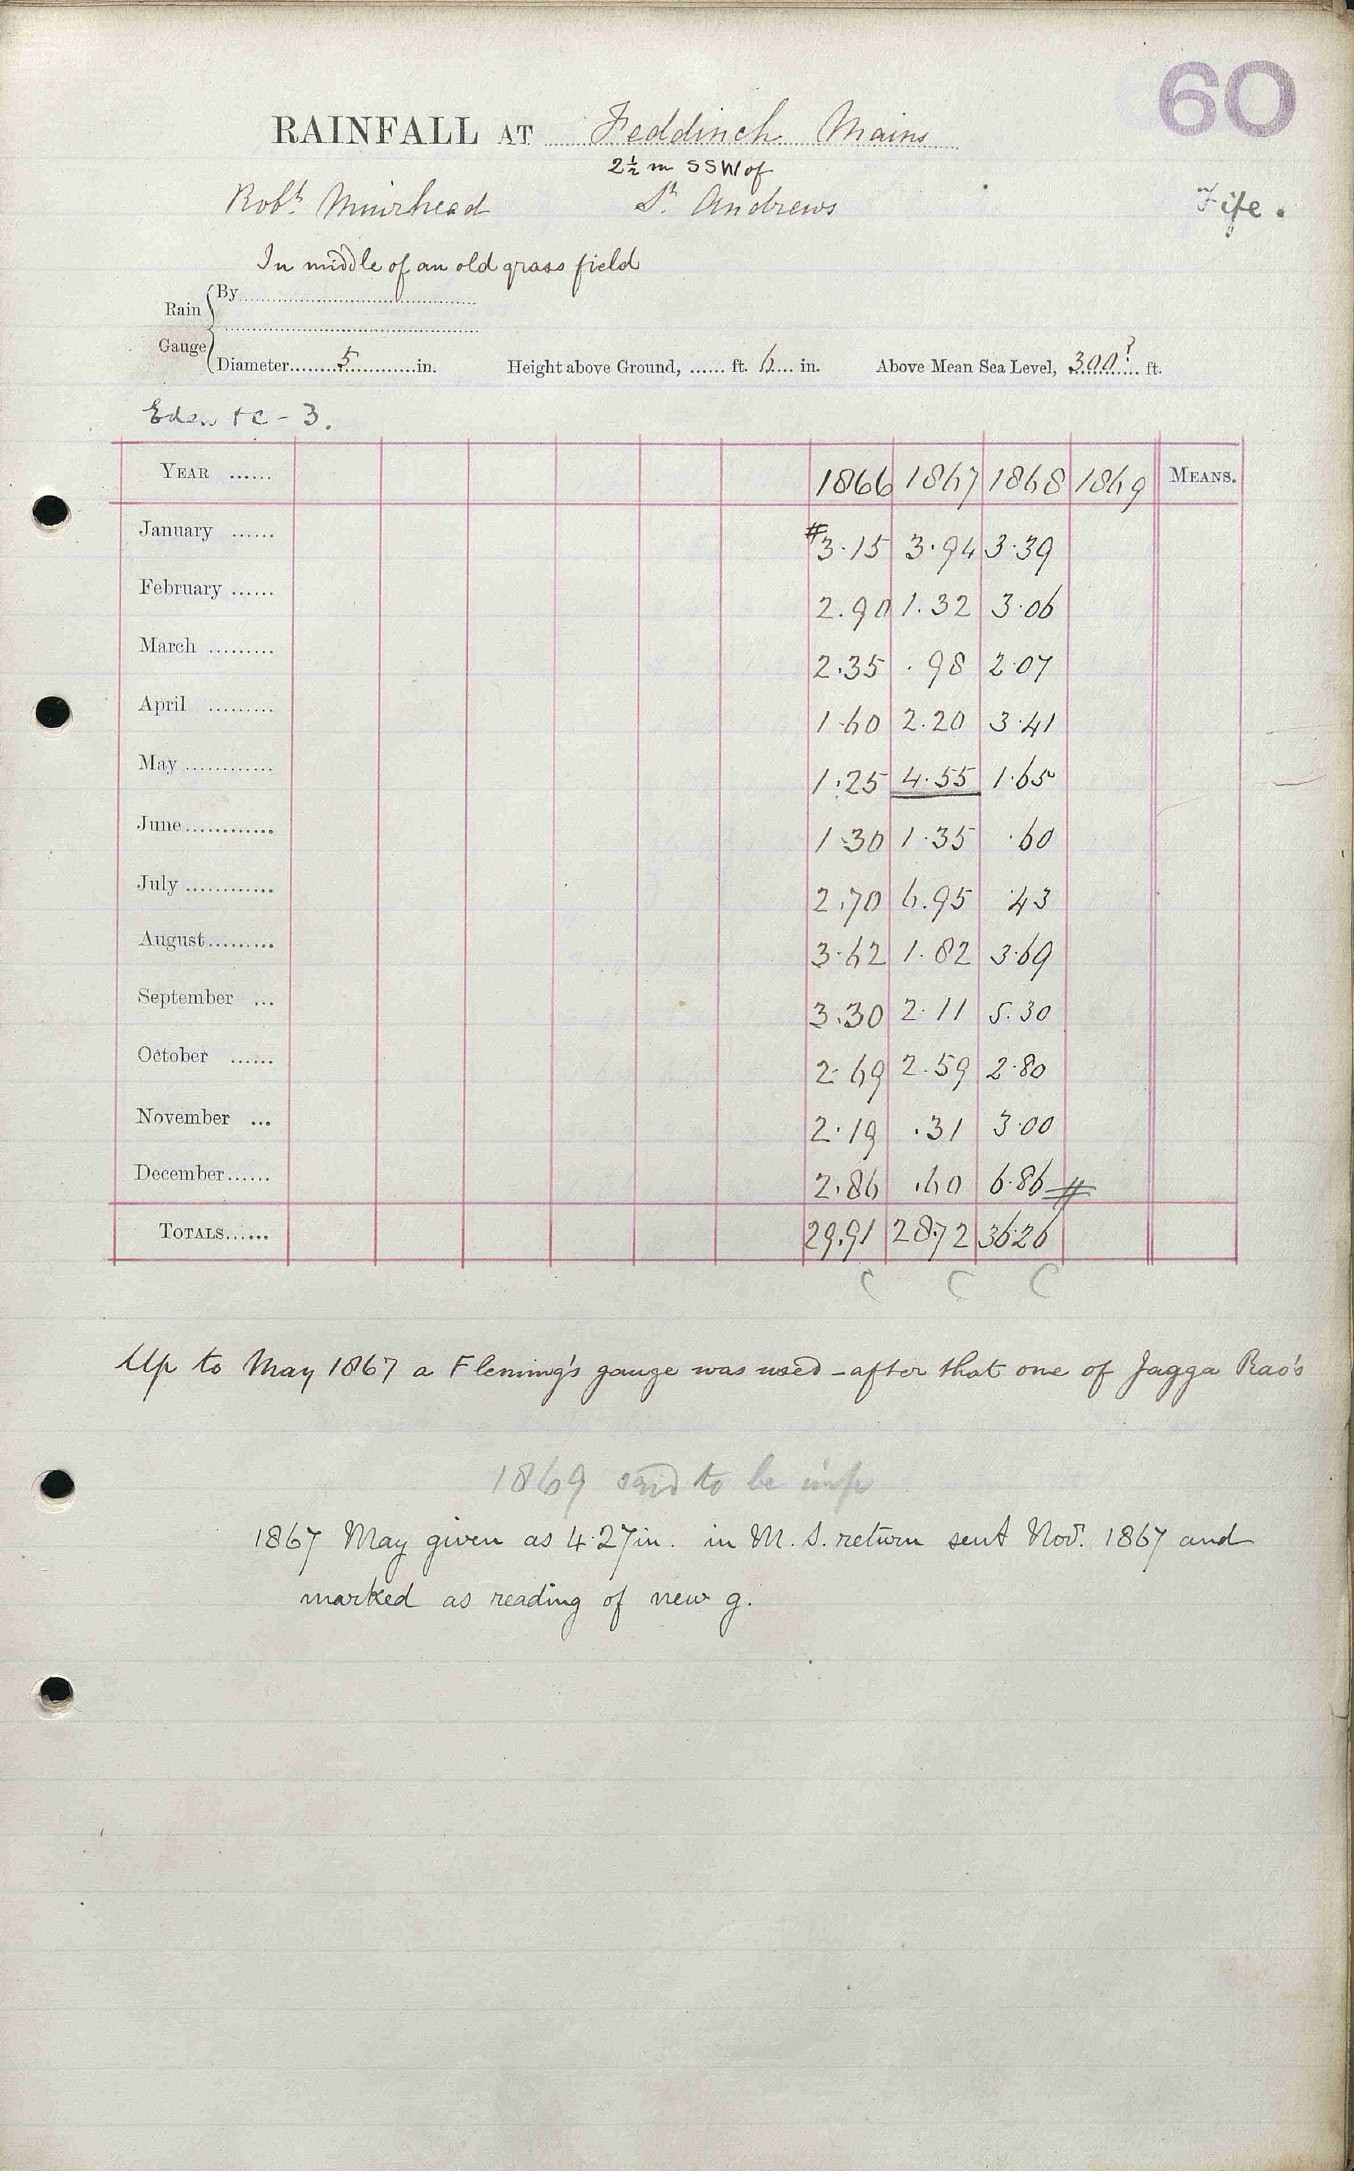 60
RAINFALL AT Feddinch Mains
2½ m SSW of
Robt. Muirhead St. Andrews Fife.
In middle of an old grass field
Rain Gauge
By
Diameter 5 in. Height above Ground, ...... ft. 6 in. Above Mean Sea Level, 300? ft.
Eden + c - 3.
YEAR ...... 1866 1867 1868 1869 MEANS.
January ...... #3.15 3.94 3.39
February ...... 2.90 1.32 3.06
March ......... 2.35 .98 2.07
April ......... 1.60 2.20 3.41
May ............ 1.25 4.55 1.65
June............ 1.30 1.35 .60
July ............ 2.70 6.95 .43
August......... 3.62 1.82 3.69
September ... 3.30 2.11 5.30
October ...... 2.69 2.59 2.80
November ... 2.19 .31 3.00
December...... 2.86 .60 6.86 #
TOTALS...... 29.91 28.72 36.26
C C C
Up to May 1867 a Fleming's gauge was used - after that one of Jagga Rao's
1869 said to be imp
1867 May given as 4.27 in. in M.S. return sent Nov. 1867 and
marked as reading of new g.